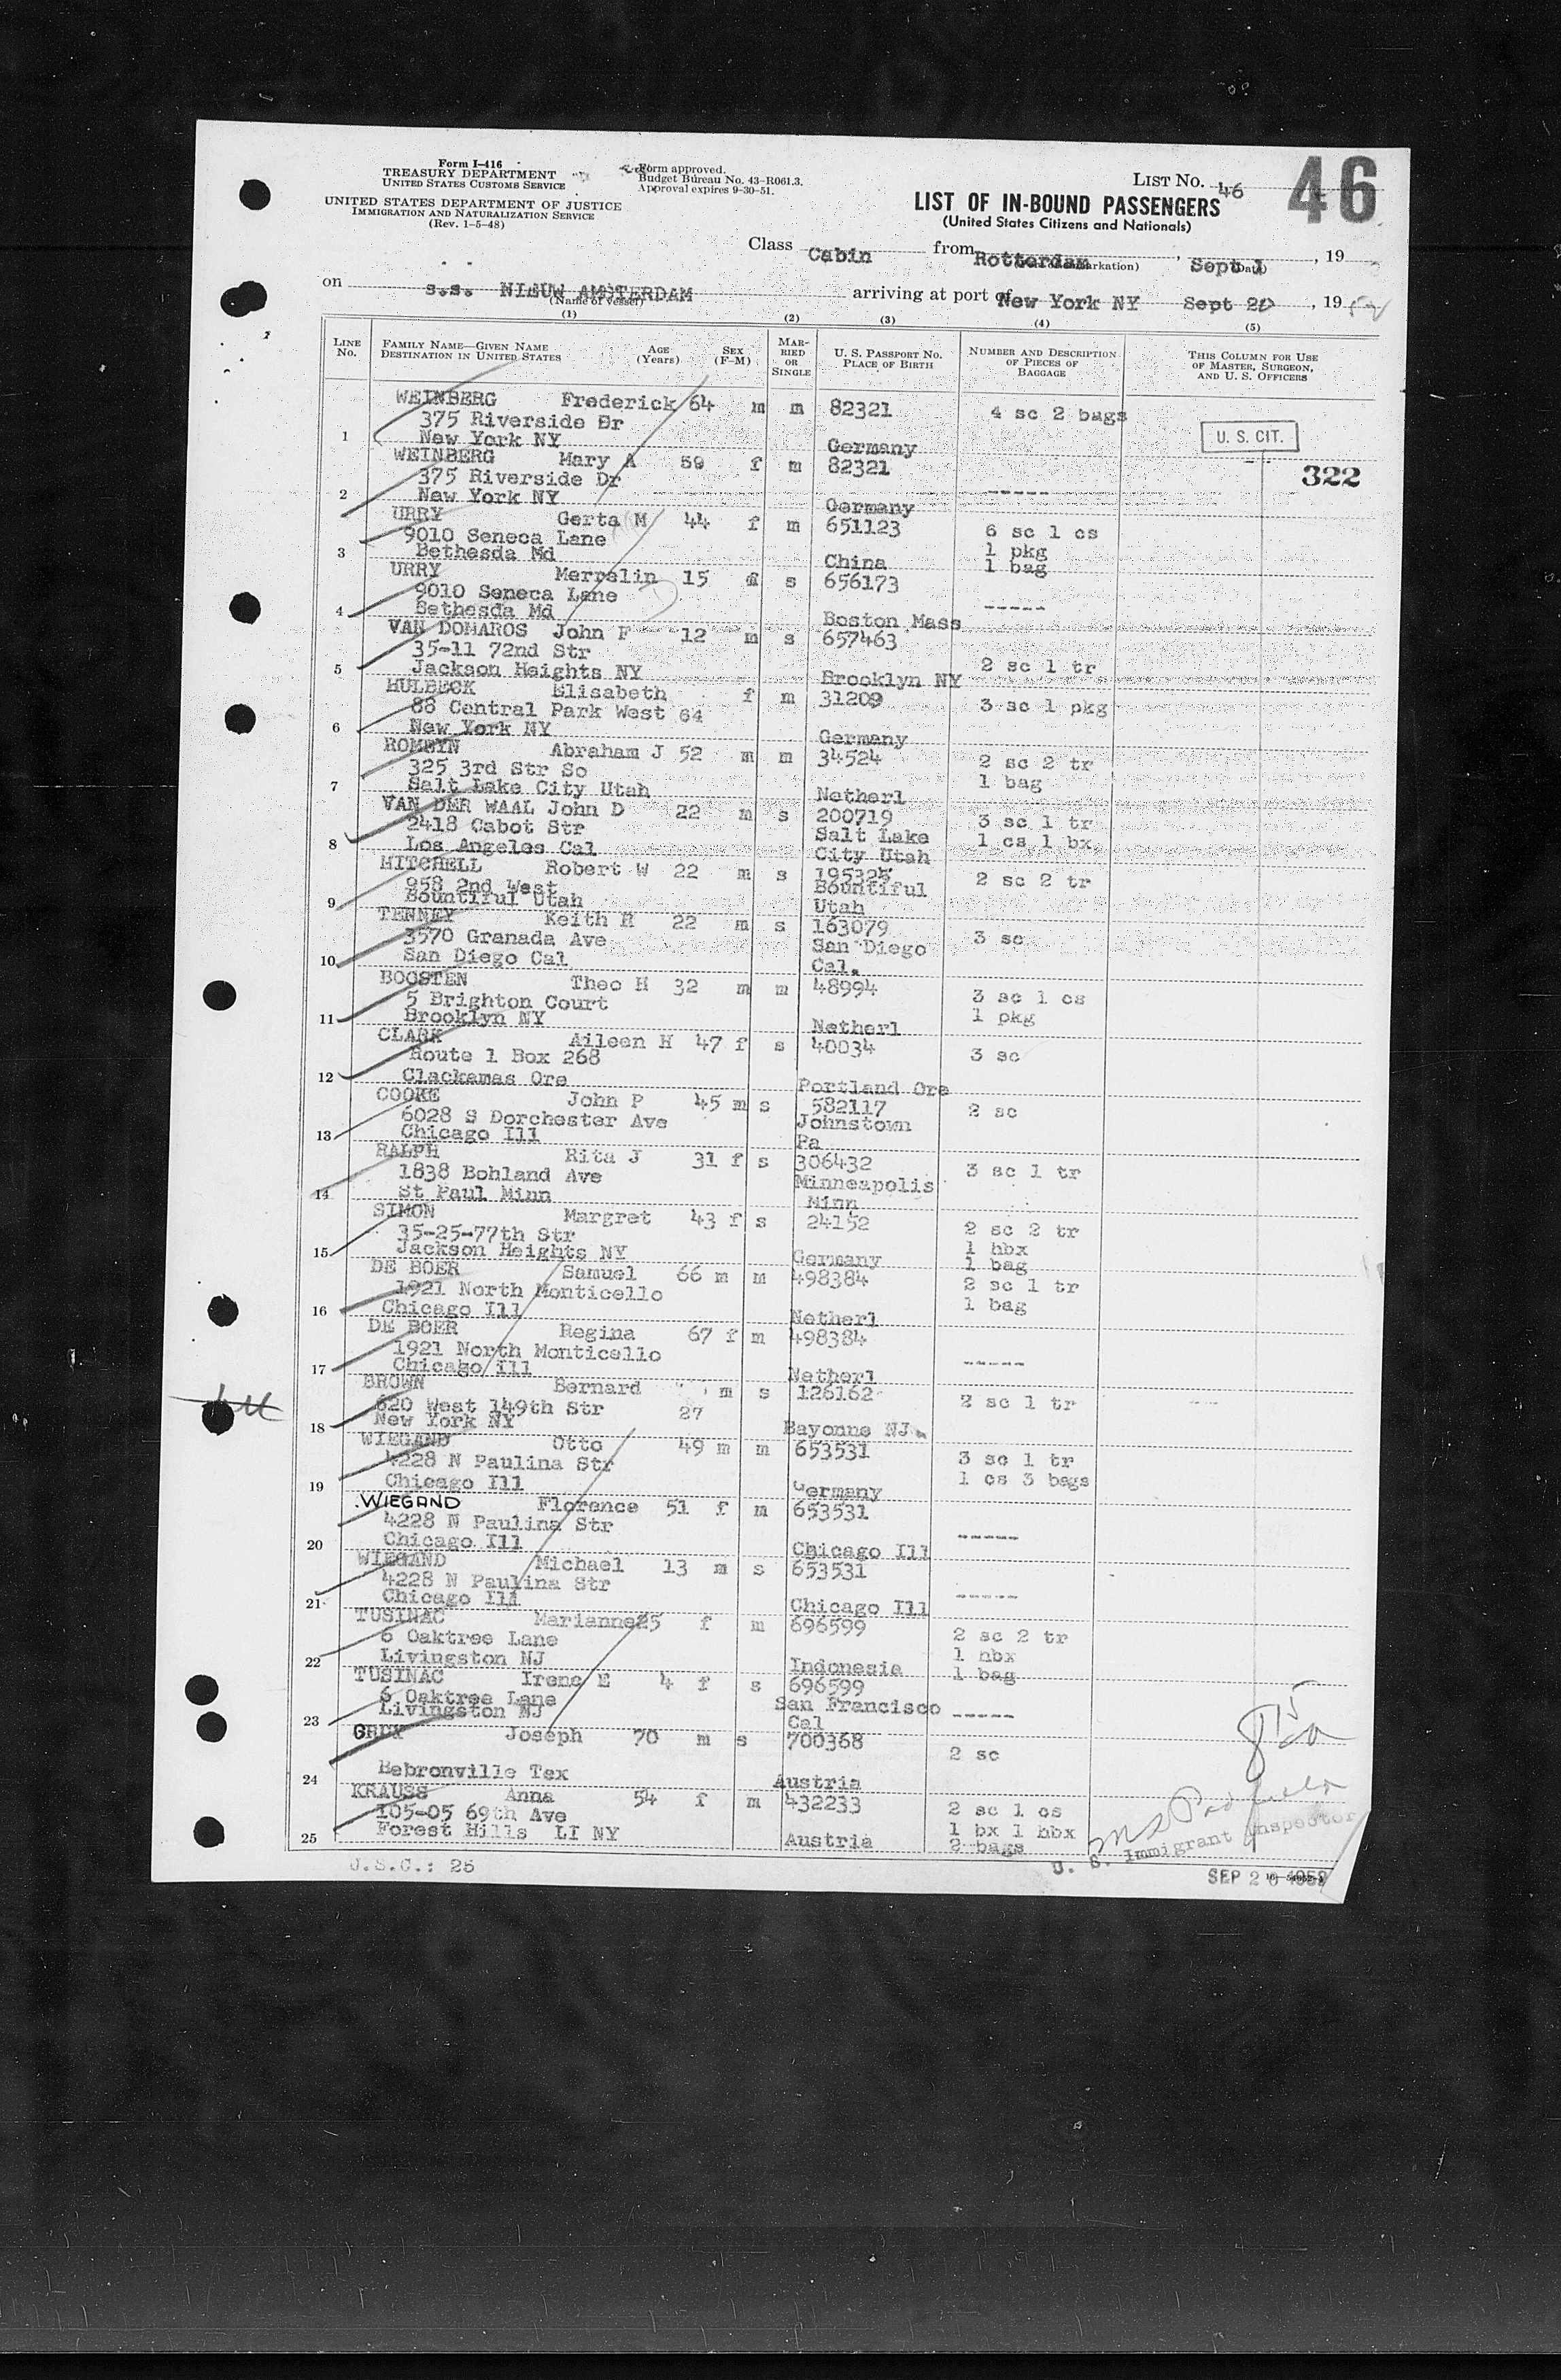 Form I-416
TREASURY DEPARTMENT
UNITED STATES CUSTOMS SERVICE
UNITED STATES DEPARTMENT OF JUSTICE
IMMIGRATION AND NATURALIZATION SERVICE
(Rev. 1-5-48)
Form approved.
Budget Bureau No. 43-R061.3.
Approval expires 9-30-51.
LIST NO. 46
46
LIST OF IN-BOUND PASSENGERS
(United States Citizens and Nationals)
Class Cabin from Rotterdam, Sept 1, 19
on s.s. NIEUW AMSTERDAM arriving at port of New York NY Sept 20, 1952
(Name of vessel)
(1) (2) (3) (4) (5)
LINE NO. FAMILY NAME—GIVEN NAME DESTINATION IN UNITED STATES AGE (Years) SEX (F-M) MARRIED OR SINGLE U. S. PASSPORT NO. PLACE OF BIRTH NUMBER AND DESCRIPTION OF PIECES OF BAGGAGE THIS COLUMN FOR USE OF MASTER, SURGEON, AND U. S. OFFICERS
WEINBERG Frederick 64 m m 82321 4 sc 2 bags
375 Riverside Dr
1 New York NY Germany
U. S. CIT.
322
WEINBERG Mary A 59 f m 82321
375 Riverside Dr
2 New York NY Germany -----
URRY Gerta M 44 f m 651123 6 sc 1 cs
9010 Seneca Lane 1 pkg
3 Bethesda Md China 1 bag
URRY Merralin 15 f s 656173
9010 Seneca Lane -----
4 Bethesda Md Boston Mass
VAN DOMAROS John F 12 m s 657463
35-11 72nd Str
5 Jackson Heights NY Brooklyn NY 2 sc 1 tr
HULBECK Elisabeth f m 31209 3 sc 1 pkg
88 Central Park West 64
6 New York NY Germany
ROMBYN Abraham J 52 m m 34524 2 sc 2 tr
325 3rd Str So 1 bag
7 Salt Lake City Utah Netherl
VAN DER WAAL John D 22 m s 200719 3 sc 1 tr
2418 Cabot Str Salt Lake 1 cs 1 bx
8 Los Angeles Cal City Utah
MITCHELL Robert W 22 m s 2 sc 2 tr
958 2nd West Bountiful
9 Bountiful Utah Utah
TENNEY Keith H 22 m s 163079
3570 Granada Ave San Diego 3 sc
10 San Diego Cal Cal.
BOOSTEN Theo H 32 m m 48994 3 sc 1 cs
5 Brighton Court 1 pkg
11 Brooklyn NY Netherl
CLARK Aileen H 47 f s 40034 3 sc
Route 1 Box 268
12 Clackamas Ore Portland Ore
COOKE John P 45 m s 582117 2 sc
6028 S Dorchester Ave Johnstown
13 Chicago Ill Pa
RALPH Rita J 31 f s 306432 3 sc 1 tr
1838 Bohland Ave Minneapolis
14 St Paul Minn Minn
SIMON Margret 43 f s 24152 2 sc 2 tr
35-25-77th Str 1 hbx
15 Jackson Heights NY Germany 1 bag
DE BOER Samuel 66 m m 498384 2 sc 1 tr
1921 North Monticello 1 bag
16 Chicago Ill Netherl
DE BOER Regina 67 f m 498384
1921 North Monticello -----
17 Chicago Ill Netherl
BROWN Bernard m s 126162 2 sc 1 tr
620 West 149th Str 27
18 New York NY Bayonne NJ
WIEGAND Otto 49 m m 653531 3 sc 1 tr
4228 N Paulina Str 1 cs 3 bags
19 Chicago Ill Germany
WIEGAND Florence 51 f m 653531
4228 N Paulina Str -----
20 Chicago Ill Chicago Ill
WIEGAND Michael 13 m s 653531
4228 N Paulina Str -----
21 Chicago Ill Chicago Ill
TUSINAC Marianne 25 f m 696599 2 sc 2 tr
6 Oaktree Lane 1 hbx
22 Livingston NJ Indonesia 1 bag
TUSINAC Irene E 4 f s 696599
6 Oaktree Lane San Francisco -----
23 Livingston NJ Cal
Joseph 70 m s 700368 2 sc
24 Hebronville Tex Austria
KRAUSS Anna 54 f m 432233 2 sc 1 cs
105-05 69th Ave 1 bx 1 hbx
25 Forest Hills LI NY Austria 2 bags
U.S.C.: 25
U. S. Immigrant Inspector
SEP 20 1952